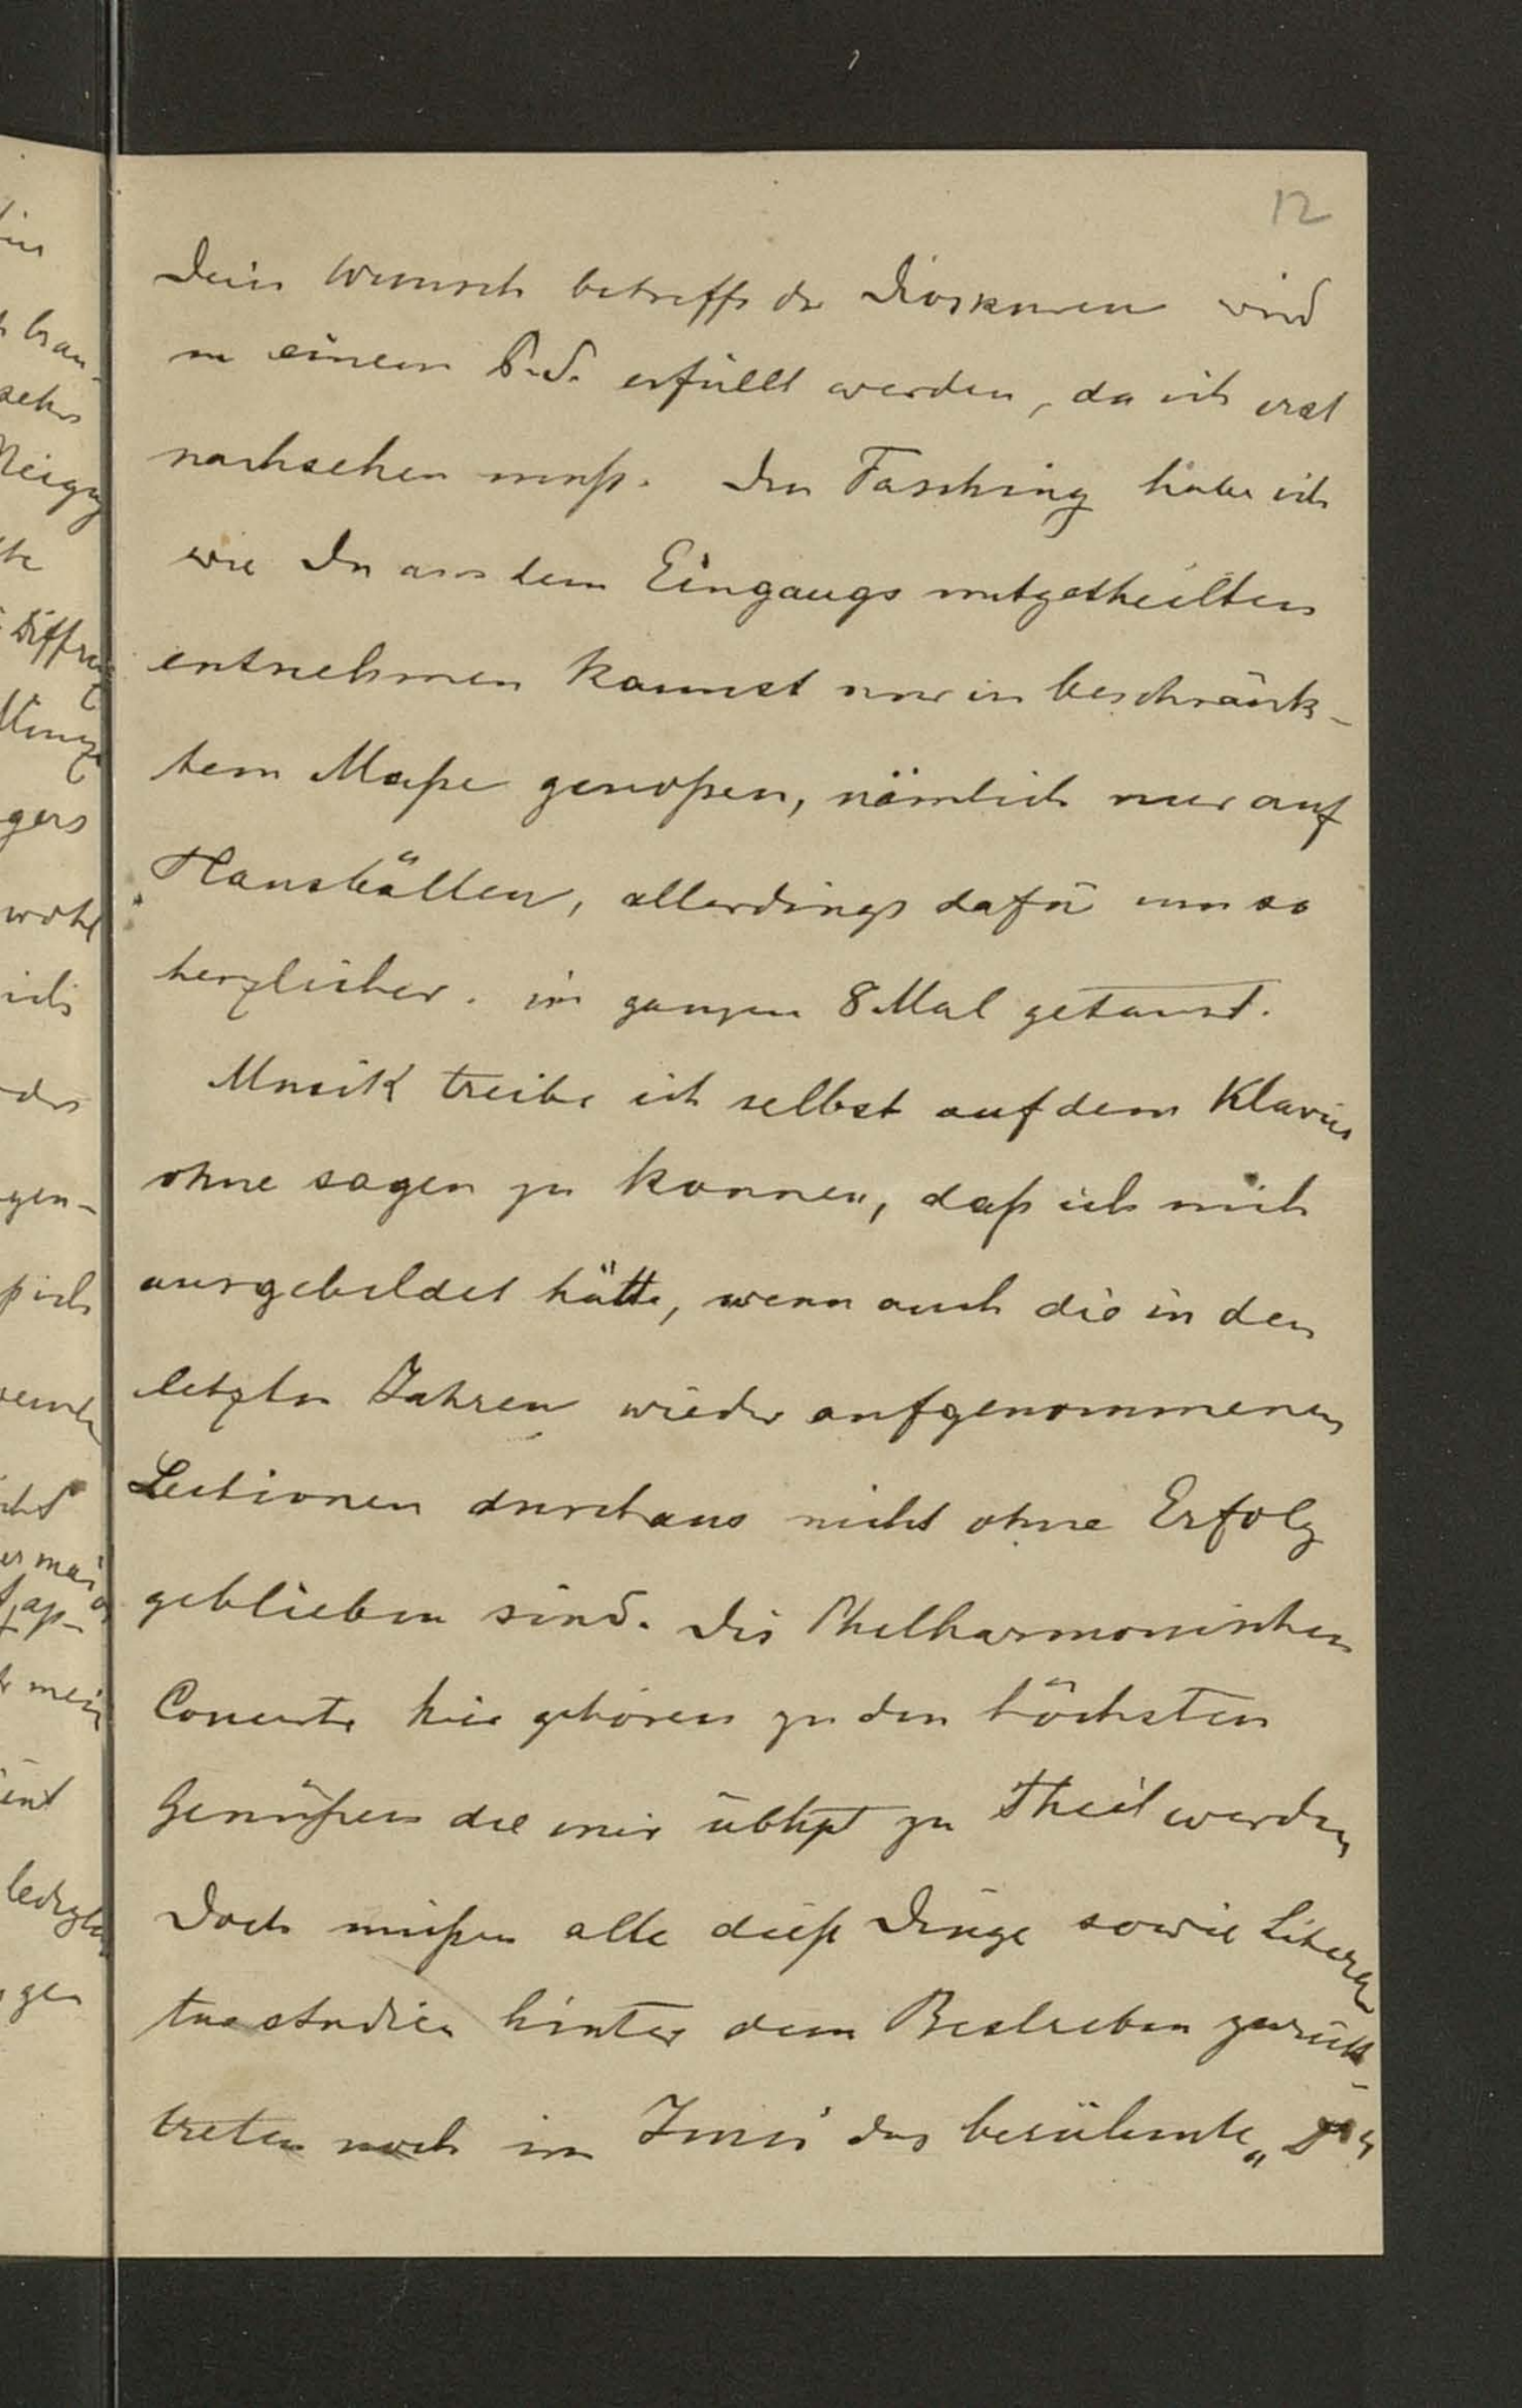 12
Dein Wunsch betreffs der Dioskuren wird
in einem P.S. erfüllt werden, da ich erst
nachsehen muß. Den Fasching habe ich
wie Du aus dem Eingangs mitgetheilten
entnehmen kannst nur in beschränk-
tem Maße genoßen, nämlich nur auf
Hausbällen, allerdings dafür um so
herzlicher. im ganzen 8 Mal getanzt.
Musik treibe ich selbst auf dem Klavier
ohne sagen zu konnen, daß ich mich
ausgebildet hätte, wenn auch die in den
letzten Jahren wieder aufgenommenen
Lectionen durchaus nicht ohne Erfolg
geblieben sind. Die Philharmonischen
Concerte hier gehören zu den höchsten
Genüßen die mir übhpt zu Theil werden
Doch müßen alle dieße Dinge sowie Litera
turstudien hinter dem Bestreben zurück-
treten noch im Juni das berühmte „